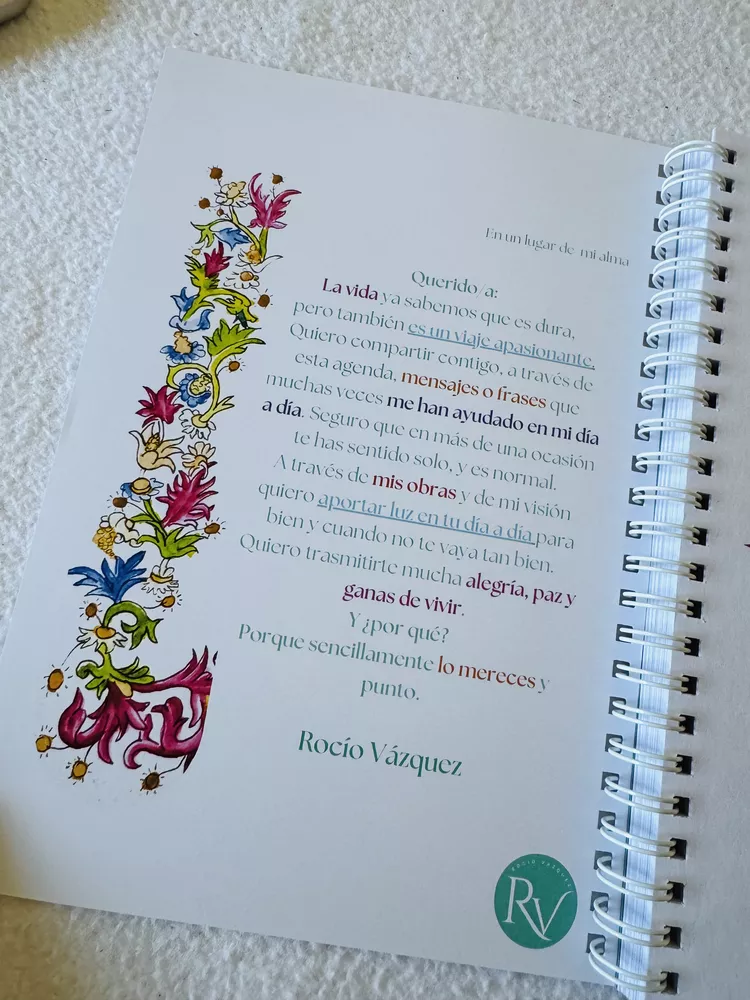 En un lugar de mi alma
Querido/a:
La vida ya sabemos que es dura,
pero también es un viaje apasionante.
Quiero compartir contigo, a través de
esta agenda, mensajes o frases que
muchas veces me han ayudado en mi día
a día. Seguro que en más de una ocasión
te has sentido solo, y es normal.
A través de mis obras y de mi visión
quiero aportar luz en tu día a día para
bien y cuando no te vaya tan bien.
Quiero trasmitirte mucha alegría, paz y
ganas de vivir.
Y ¿por qué?
Porque sencillamente lo mereces y
punto.
Rocío Vázquez
ROCÍO VÁZQUEZ
RV